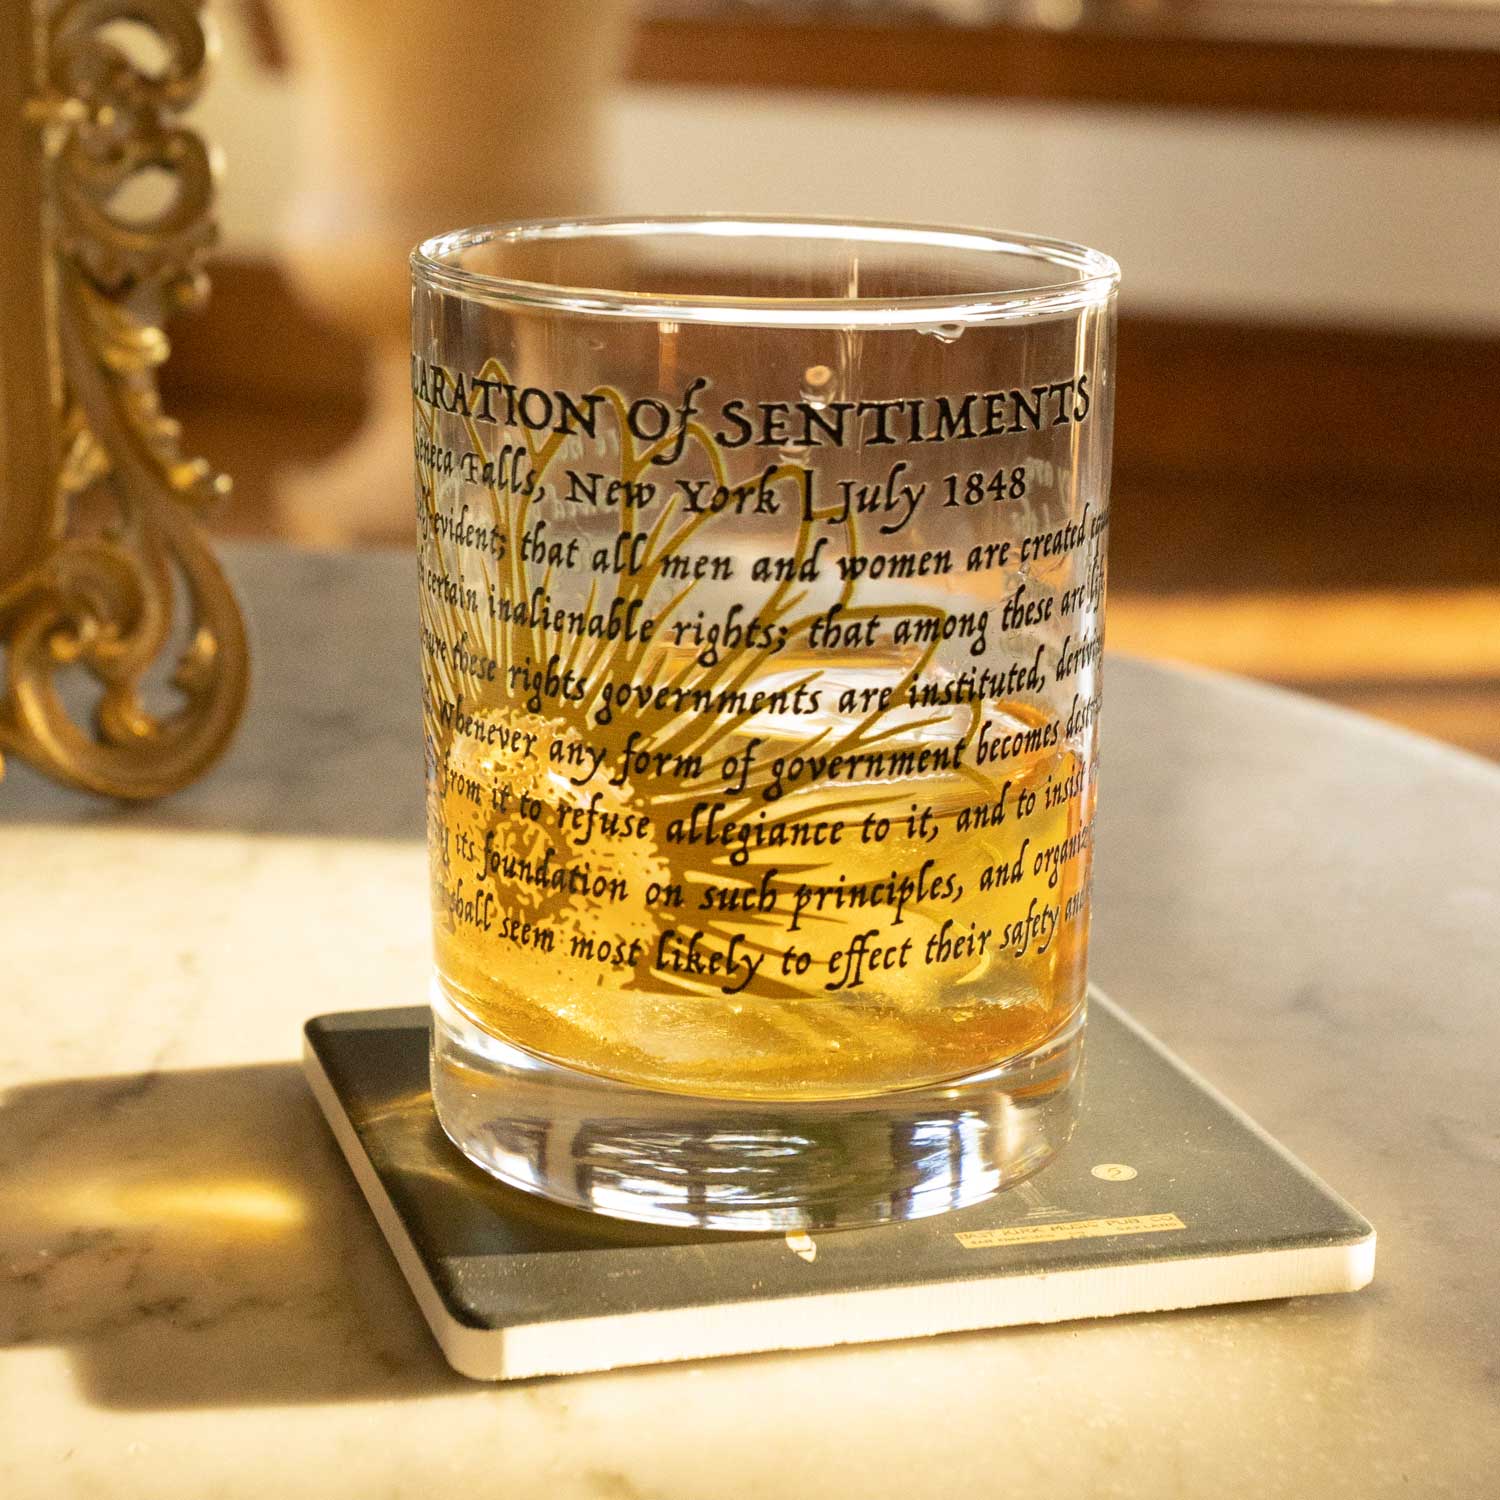 ARATION Of SENTIMENTS
Seneca Falls, New York | July 1848
evident; that all men and women are created
certain inalienable rights; that among these are
these rights governments are instituted,
whenever any form of government becomes
from it to refuse allegiance to it, and to insist
its foundation on such principles, and
shall seem most likely to effect their safety